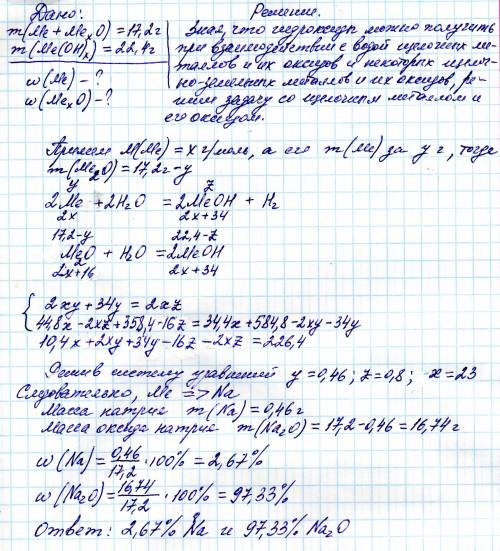 Дано:
m(Me + MeₓO) = 17,2г
m(Me(OH)ₓ) = 22,4г
ω(Me) - ?
ω(MeₓO) - ?
Решение.
Зная, что гидроксиды можно получить
при взаимодействии с водой щелочных ме-
таллов и их оксидов и некоторых щелоч-
но-земельных металлов и их оксидов, ре-
шим задачу со щелочным металлом и
его оксидом.
Примем M(Me) = x г/моль, а его m(Me) за y г, тогда
m(Me₂O) = 17,2г - y
y z
2Me + 2H₂O = 2MeOH + H₂
2x 2x+34
17,2-y 22,4-z
Me₂O + H₂O = 2MeOH
2x+16 2x+34
{ 2xy + 34y = 2xz
44,8x - 2xz + 358,4 - 16z = 34,4x + 584,8 - 2xy - 34y
10,4x + 2xy + 34y - 16z - 2xz = 226,4
Решив систему уравнений y = 0,46; z = 0,8; x = 23
Следовательно, Me => Na
Масса натрия m(Na) = 0,46г
Масса оксида натрия m(Na₂O) = 17,2 - 0,46 = 16,74г
ω(Na) = 0,46/17,2 · 100% = 2,67%
ω(Na₂O) = 16,74/17,2 · 100% = 97,33%
Ответ: 2,67% Na и 97,33% Na₂O